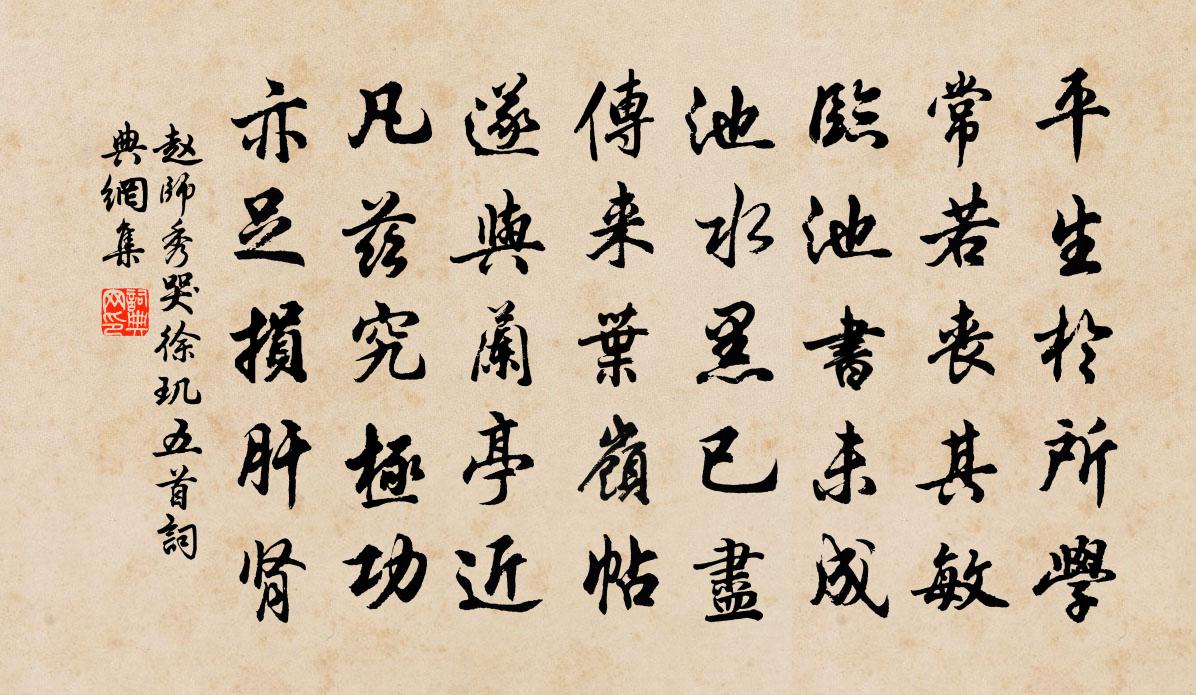 平生於所學
常若喪其敏
臨池書未成
池水黑已盡
傳来葉嶺帖
遂與蘭亭近
凡兹究極功
亦足損肝肾
赵師秀哭徐玑五首詞
典網集
詞典
网印